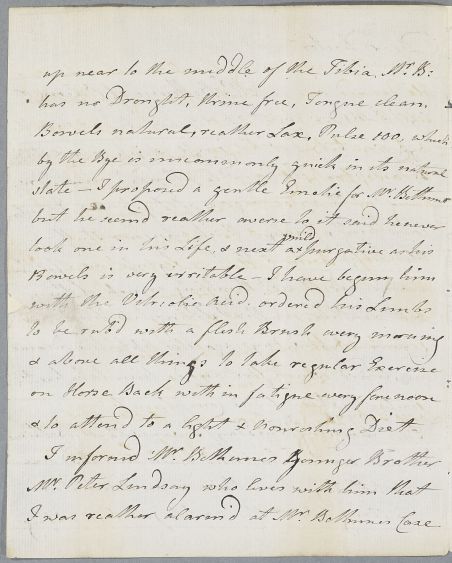 up near to the middle of the Tibia. Mr. B:
has no Drought, Urine free, Tongue clean,
Bowels natural, reather Lax, Pulse 100, which
by the Bye is uncommonly quick in its natural
state – I proposed a gentle Emetic for Mr. Bethune
but he seem'd reather averse to it said he never
took one in his Life, & next a mild purgative as his
Bowels is very irritable – I have begun him
with the Vitriolic Acid, ordered his Limbs
to be rub'd with a flesh Brush every morning
& above all things to take regular Exercise
on Horse Back with in fatigue every forenoon
& to attend to a light & Nourishing Diet –
I informd Mr. Bethunes Younger Brother
Mr. Peter Lindsay who lives with him that
I was reather alarm'd at Mr. Bethunes Case